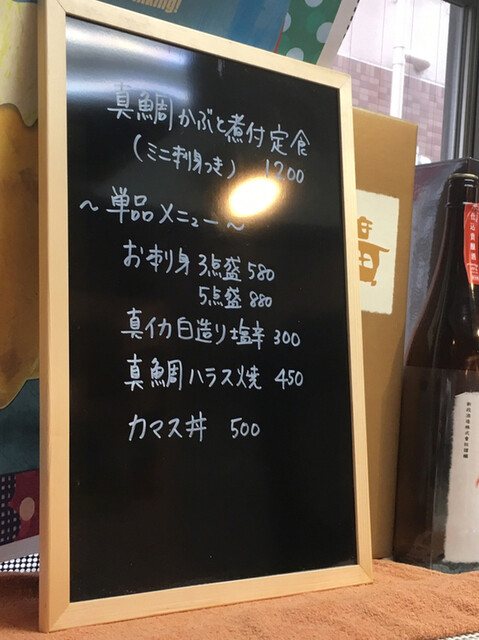 真鯛かぶと煮付定食
(ミニ刺身つき) 1200
～単品メニュー～
お刺身3点盛 580
5点盛 880
真イカ白造り塩辛 300
真鯛ハラス焼 450
カマス丼 500